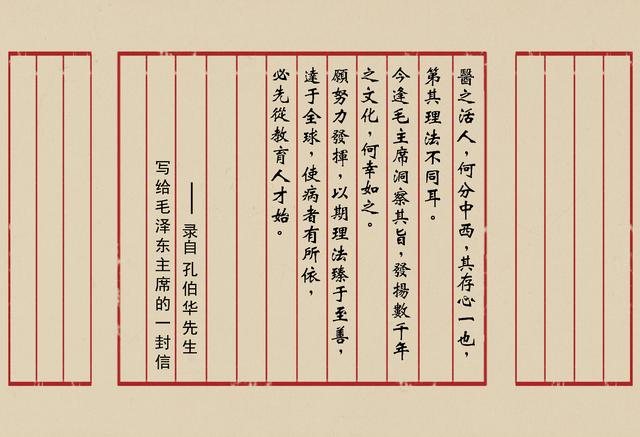 醫之活人，何分中西，其存心一也，
第其理法不同耳。
今逢毛主席洞察其旨，發揚數千年
之文化，何幸如之。
願努力發揮，以期理法臻于至善，
達于全球，使病者有所依，
必先從教育人才始。
——录自孔伯华先生
写给毛泽东主席的一封信